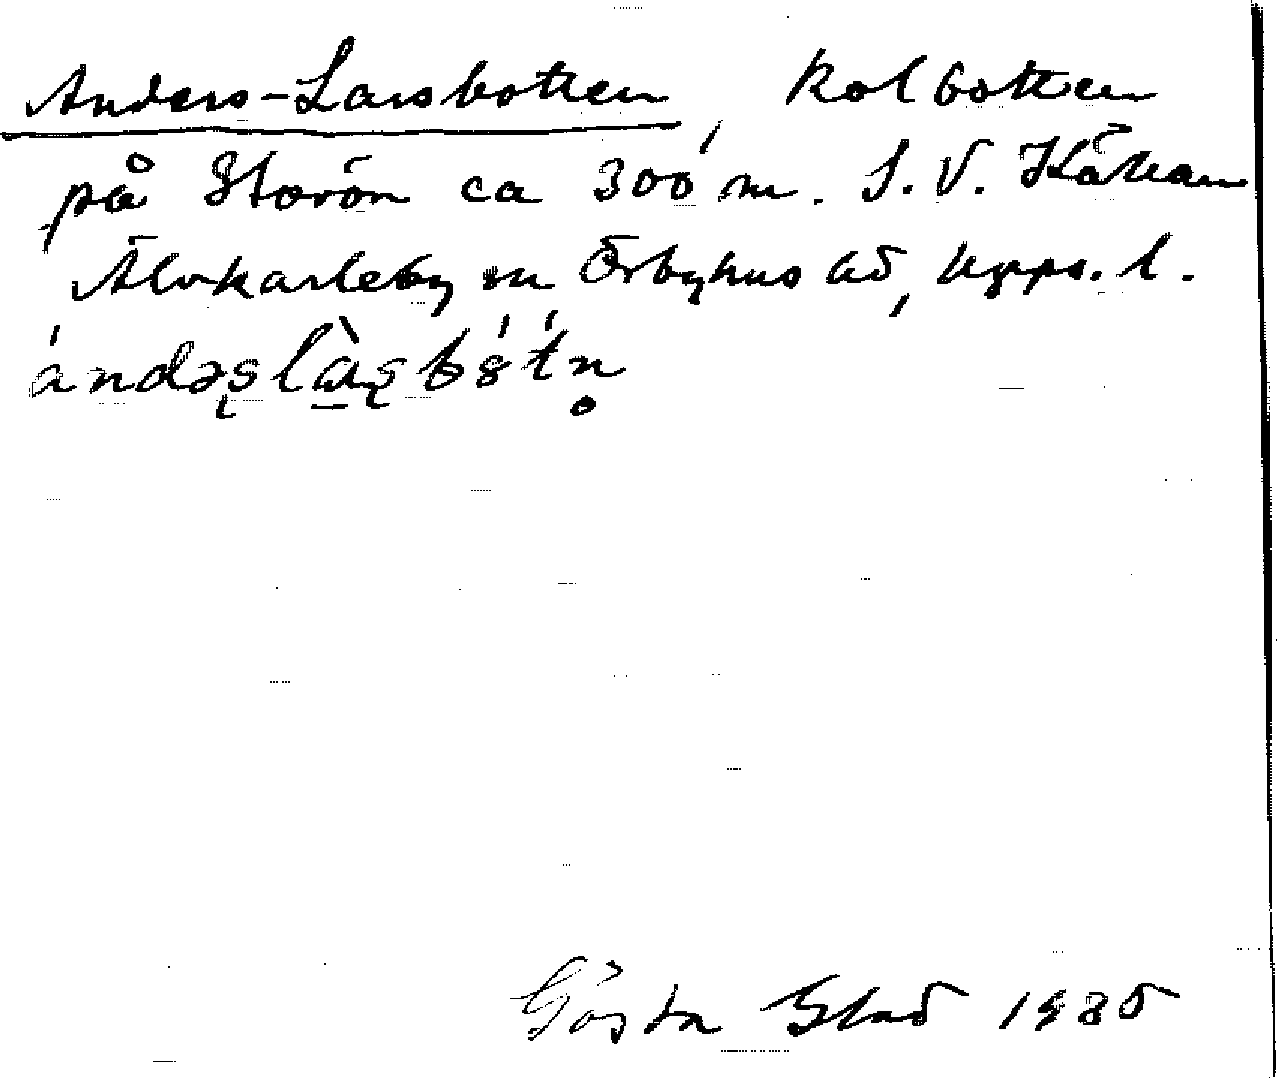 Anders-Larsbotten kolbotten
på Storön ca 300 m. S.V. Kåkan
Älvkarleby sn Örbyhus hd, Upps. l.
Gösta Blad 1935